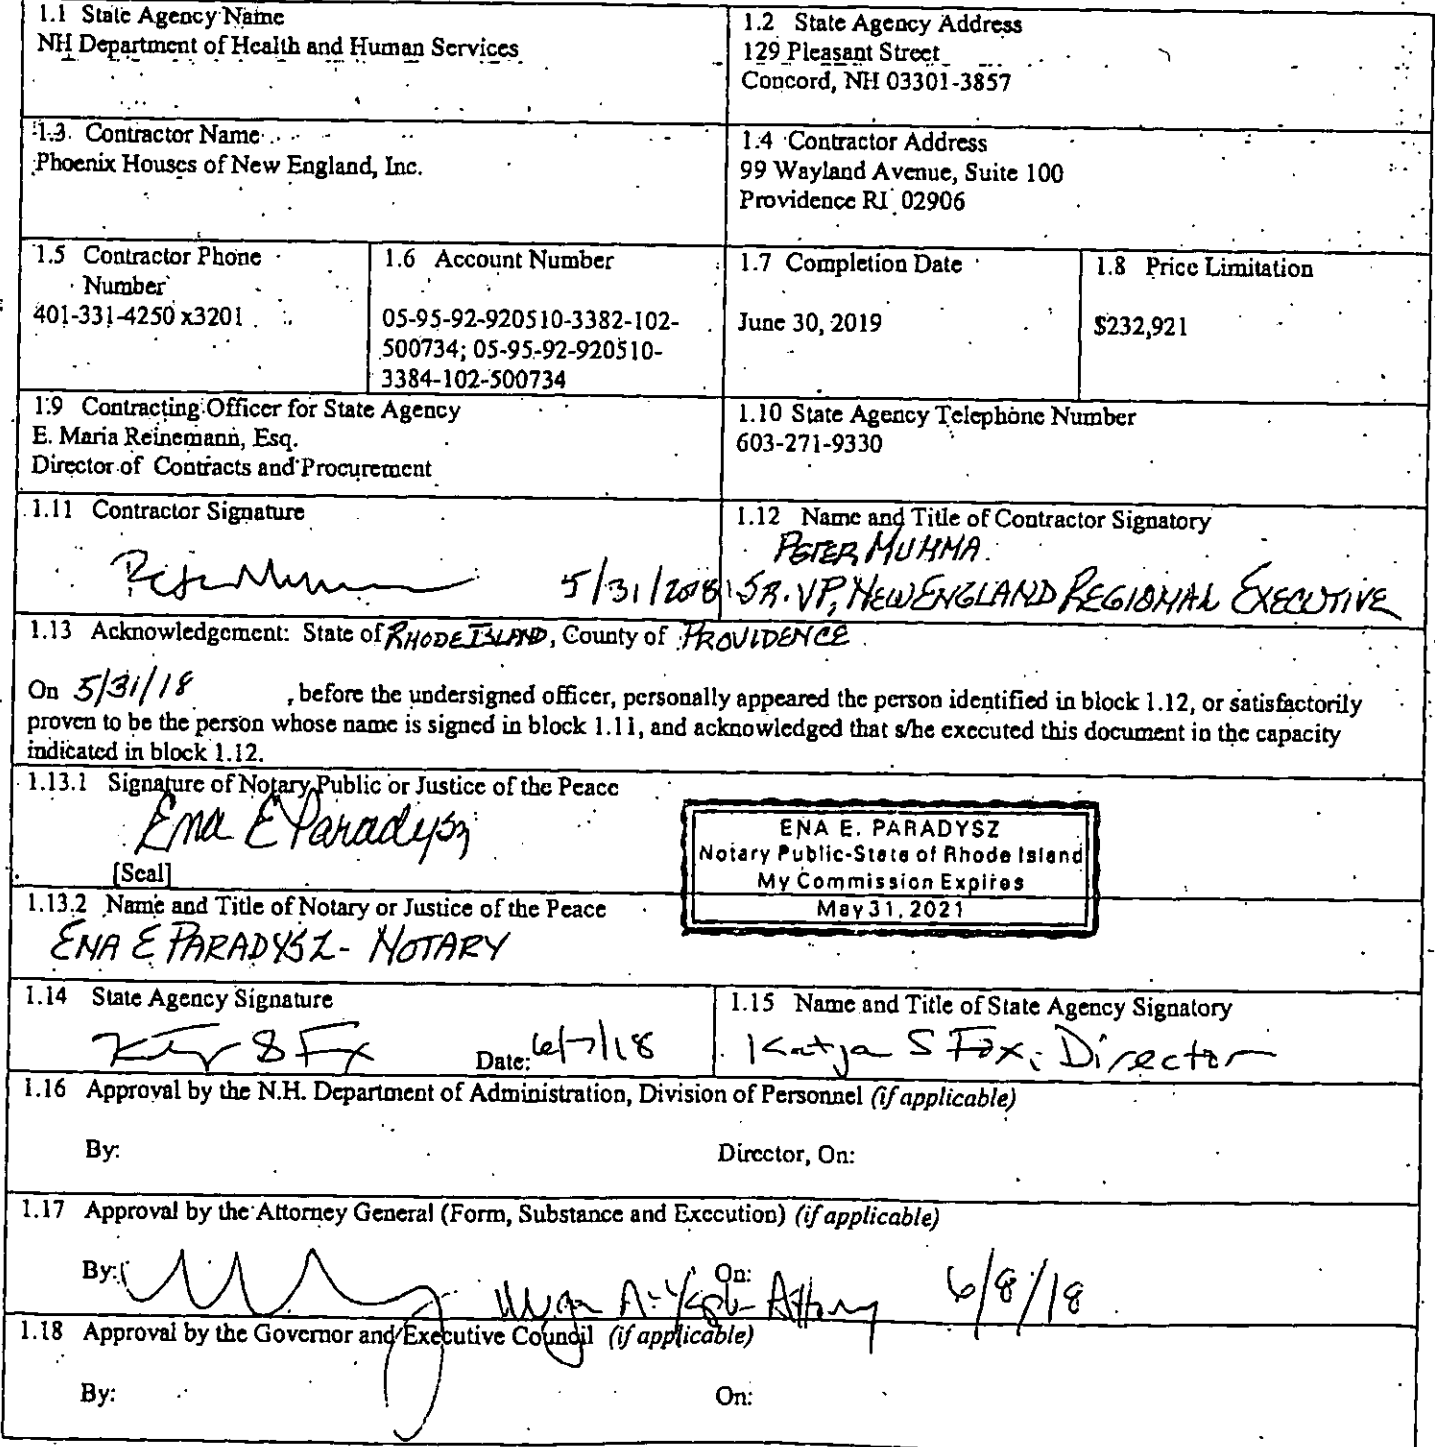 1.1 State Agency Name
NH Department of Health and Human Services
1.2 State Agency Address
129 Pleasant Street
Concord, NH 03301-3857
1.3 Contractor Name
Phoenix Houses of New England, Inc.
1.4 Contractor Address
99 Wayland Avenue, Suite 100
Providence RI 02906
1.5 Contractor Phone
Number
401-331-4250 x3201
1.6 Account Number
05-95-92-920510-3382-102-
500734; 05-95-92-920510-
3384-102-500734
1.7 Completion Date
June 30, 2019
1.8 Price Limitation
$232,921
1.9 Contracting Officer for State Agency
E. Maria Reinemann, Esq.
Director of Contracts and Procurement
1.10 State Agency Telephone Number
603-271-9330
1.11 Contractor Signature
5/31/2018
1.12 Name and Title of Contractor Signatory
PETER MUMMA
SR. VP, NEW ENGLAND REGIONAL EXECUTIVE
1.13 Acknowledgement: State of RHODE ISLAND, County of PROVIDENCE
On 5/31/18 , before the undersigned officer, personally appeared the person identified in block 1.12, or satisfactorily
proven to be the person whose name is signed in block 1.11, and acknowledged that s/he executed this document in the capacity
indicated in block 1.12.
1.13.1 Signature of Notary Public or Justice of the Peace
Ena E Paradysz
[Seal]
ENA E. PARADYSZ
Notary Public-State of Rhode Island
My Commission Expires
May 31, 2021
1.13.2 Name and Title of Notary or Justice of the Peace
ENA E PARADYSZ - NOTARY
1.14 State Agency Signature
Date: 6/7/18
1.15 Name and Title of State Agency Signatory
Katja S Fox, Director
1.16 Approval by the N.H. Department of Administration, Division of Personnel (if applicable)
By: Director, On:
1.17 Approval by the Attorney General (Form, Substance and Execution) (if applicable)
By: On: 6/8/18
1.18 Approval by the Governor and Executive Council (if applicable)
By: On: